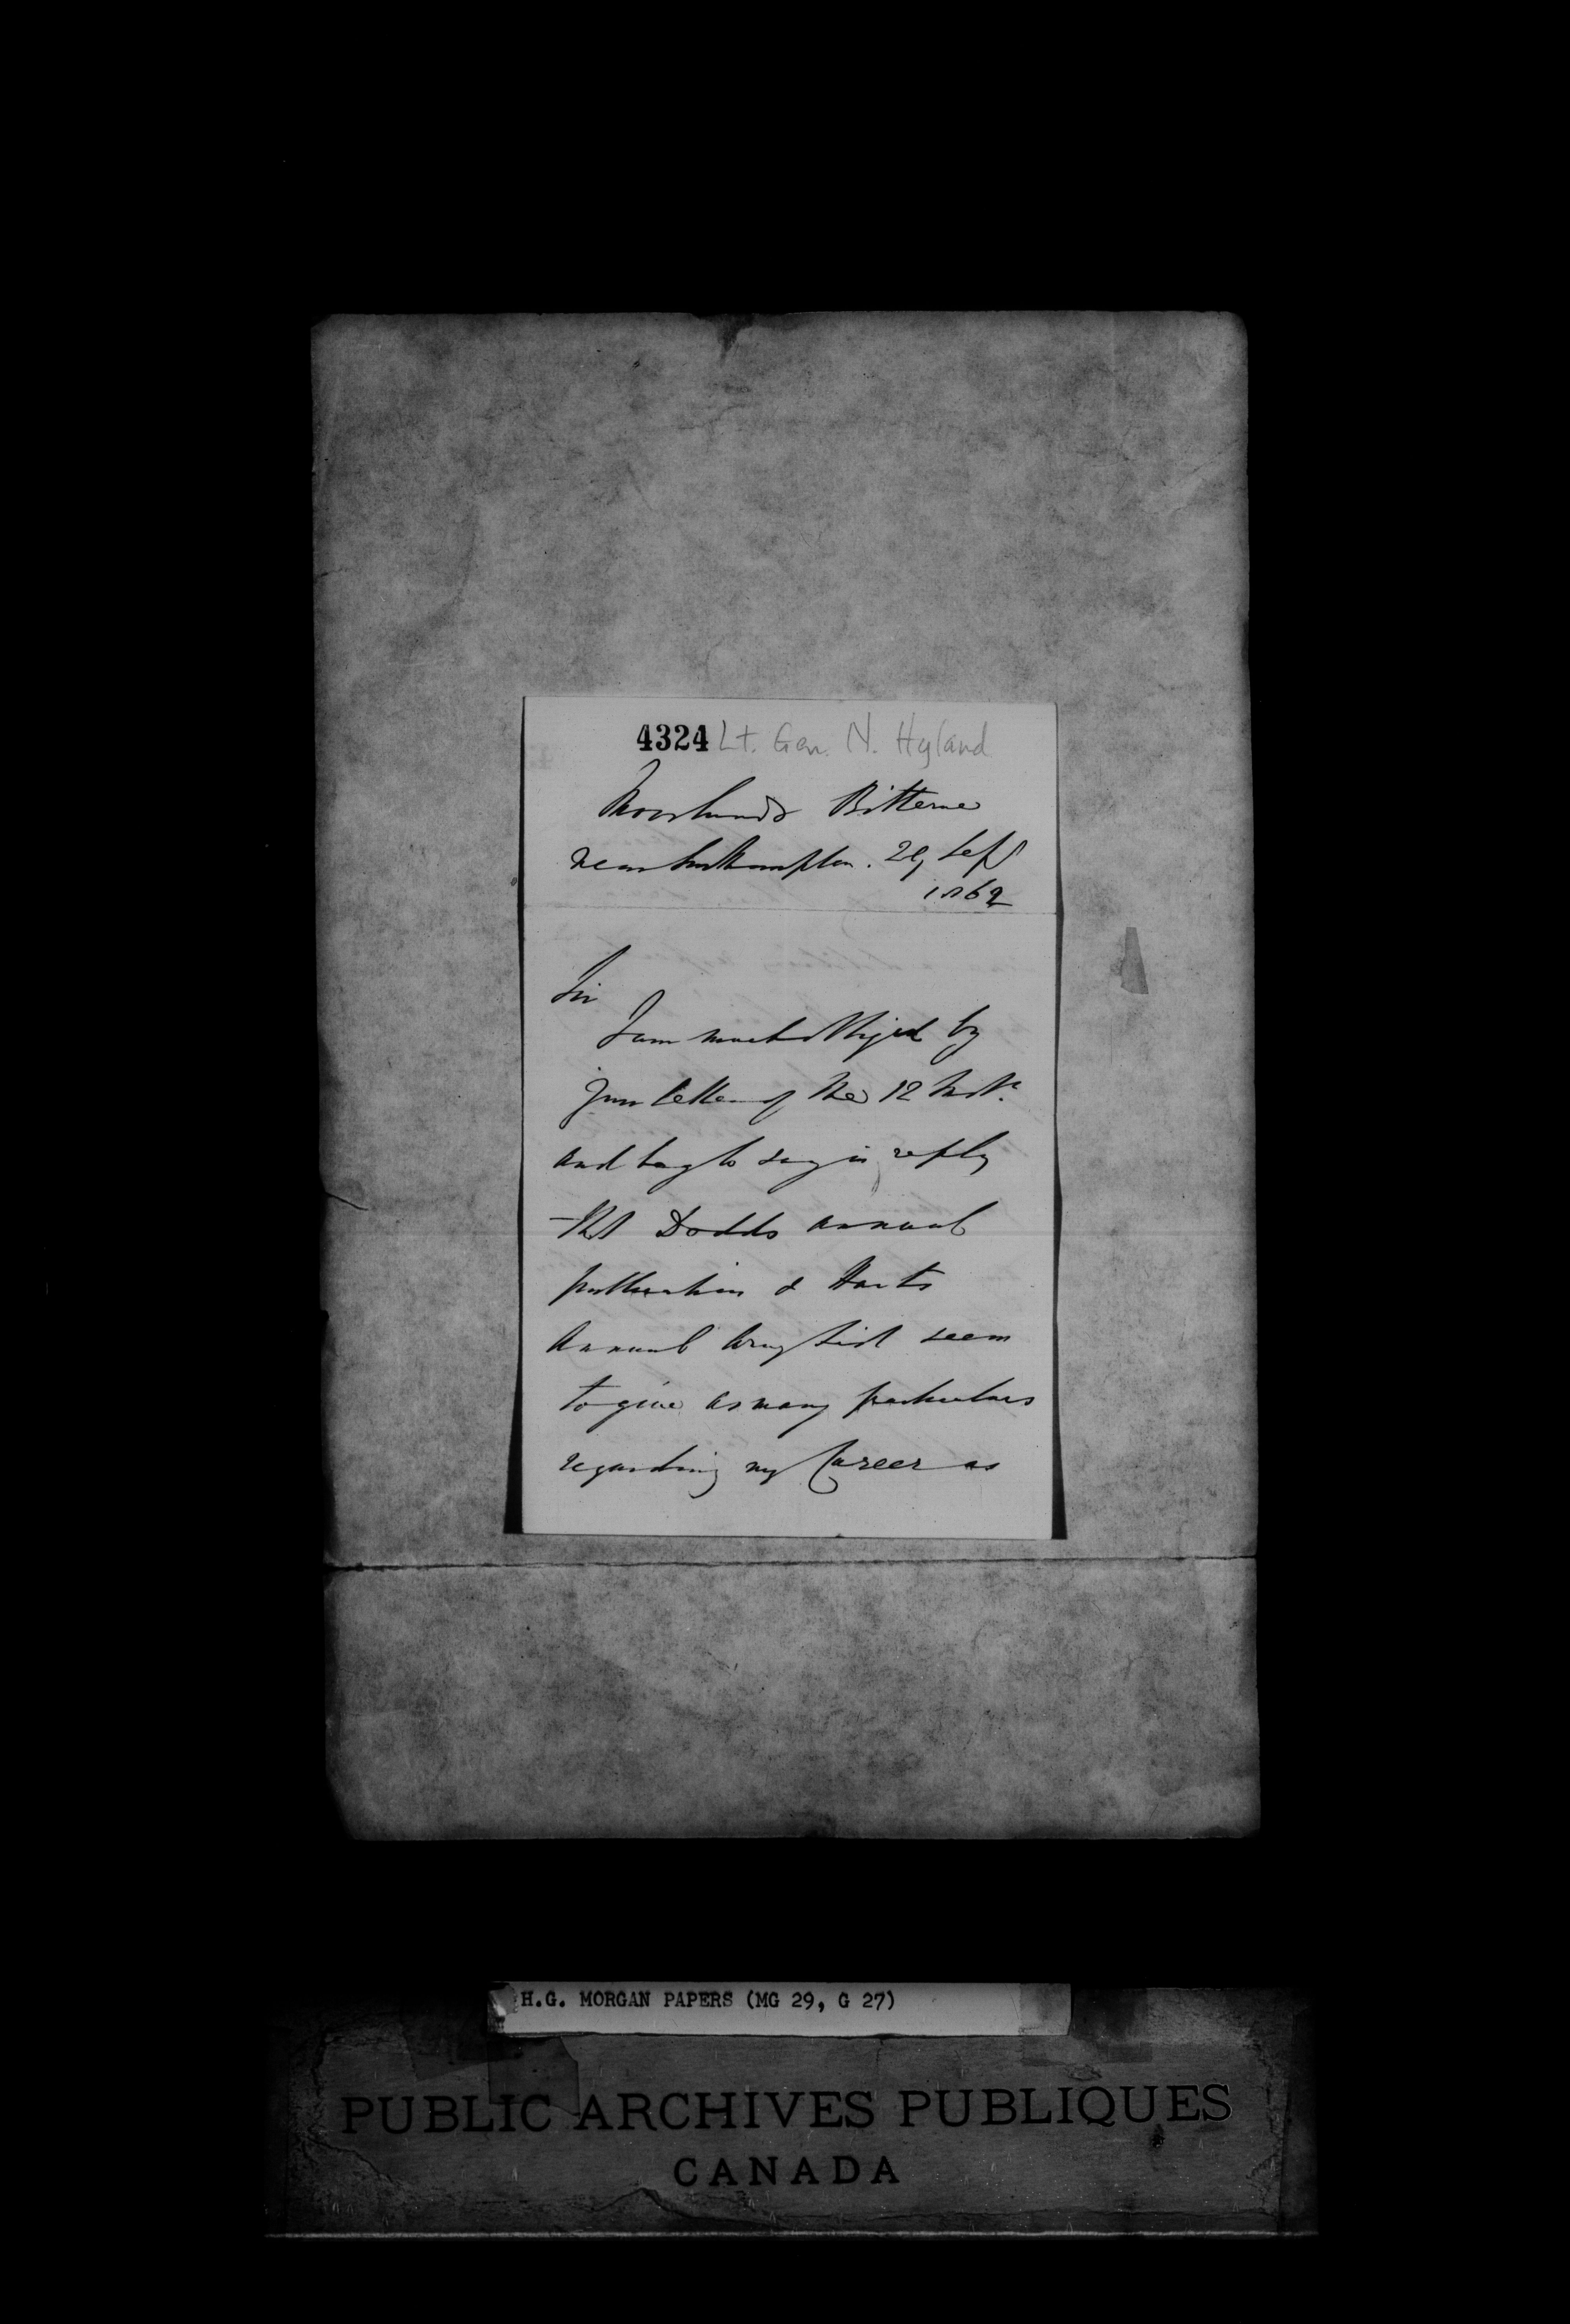 4324 Lt. Gen. N. Hyland
Moorlands Bitterne
near Southampton. 29 Sept
1862
Sir
I am much obliged by
your letter of the 12 Inst.
and beg to say in reply
that Dodds annual
publication & Harts
Annual Army List seem
to give as many particulars
regarding my Career as
H.G. MORGAN PAPERS (MG 29, G 27)
PUBLIC ARCHIVES PUBLIQUES
CANADA